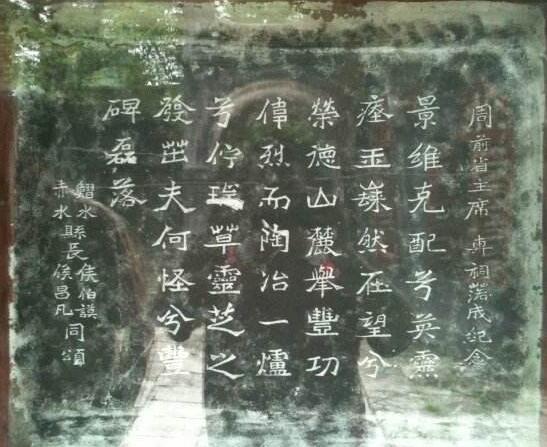 周前省主席專祠落成纪念
景維克配兮英靈
瘞玉巋然在望兮
榮德山麓舉豐功
偉烈而陶冶一爐
兮佇琁草靈芝之
發茁夫何怪兮豐
碑磊落
習水縣長侯伯謨
赤水縣長侯昌凡同頌